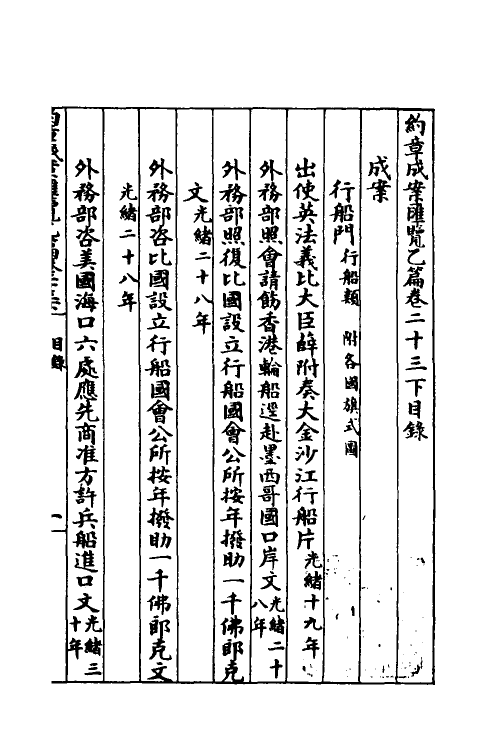 約章成案匯覽乙篇卷二十三下目錄
成案
行船門 行船類 附各國旗式圖
出使英法義比大臣薛附奏大金沙江行船片 光緒十九年
外務部照會請飭香港輪船逕赴墨西哥國口岸文 光緒二十八年
外務部照復比國設立行船國會公所按年撥助一千佛郎克
文 光緒二十八年
外務部咨比國設立行船國會公所按年撥助一千佛郎克文
光緒二十八年
外務部咨美國海口六處應先商准方許兵船進口文 光緒三十年
目錄
一